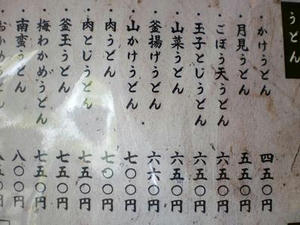 うどん
・かけうどん 四五〇円
・月見うどん 五五〇円
・ごぼう天うどん 六五〇円
・玉子とじうどん 六五〇円
・山菜うどん 六五〇円
・釜揚げうどん 六六〇円
・山かけうどん 七〇〇円
・肉うどん 七〇〇円
・肉とじうどん 七五〇円
・釜玉うどん 七五〇円
・梅わかめうどん 七五〇円
・南蛮うどん 八〇〇円
おかめうどん 八五〇円